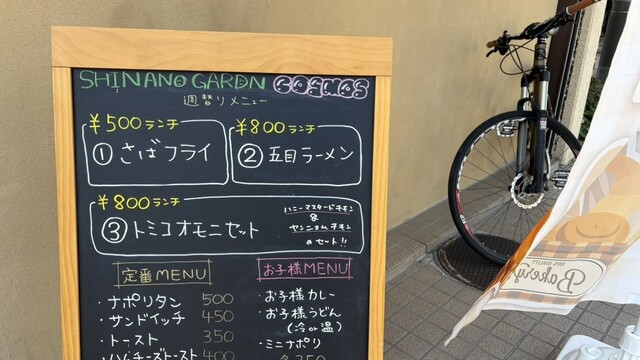 SHINANO GARDN COSMOS
週替りメニュー
¥500ランチ
① さばフライ
¥800ランチ
② 五目ラーメン
¥800ランチ
③ トミコオモニセット
ハニーマスタードチキン
&
ヤンニョムチキン
のセット!!
定番MENU
・ナポリタン 500
・サンドイッチ 450
・トースト 350
・ハムチーズトースト 400
お子様MENU
・お子様カレー
・お子様うどん
(冷or温)
・ミニナポリ
各350
Bakery